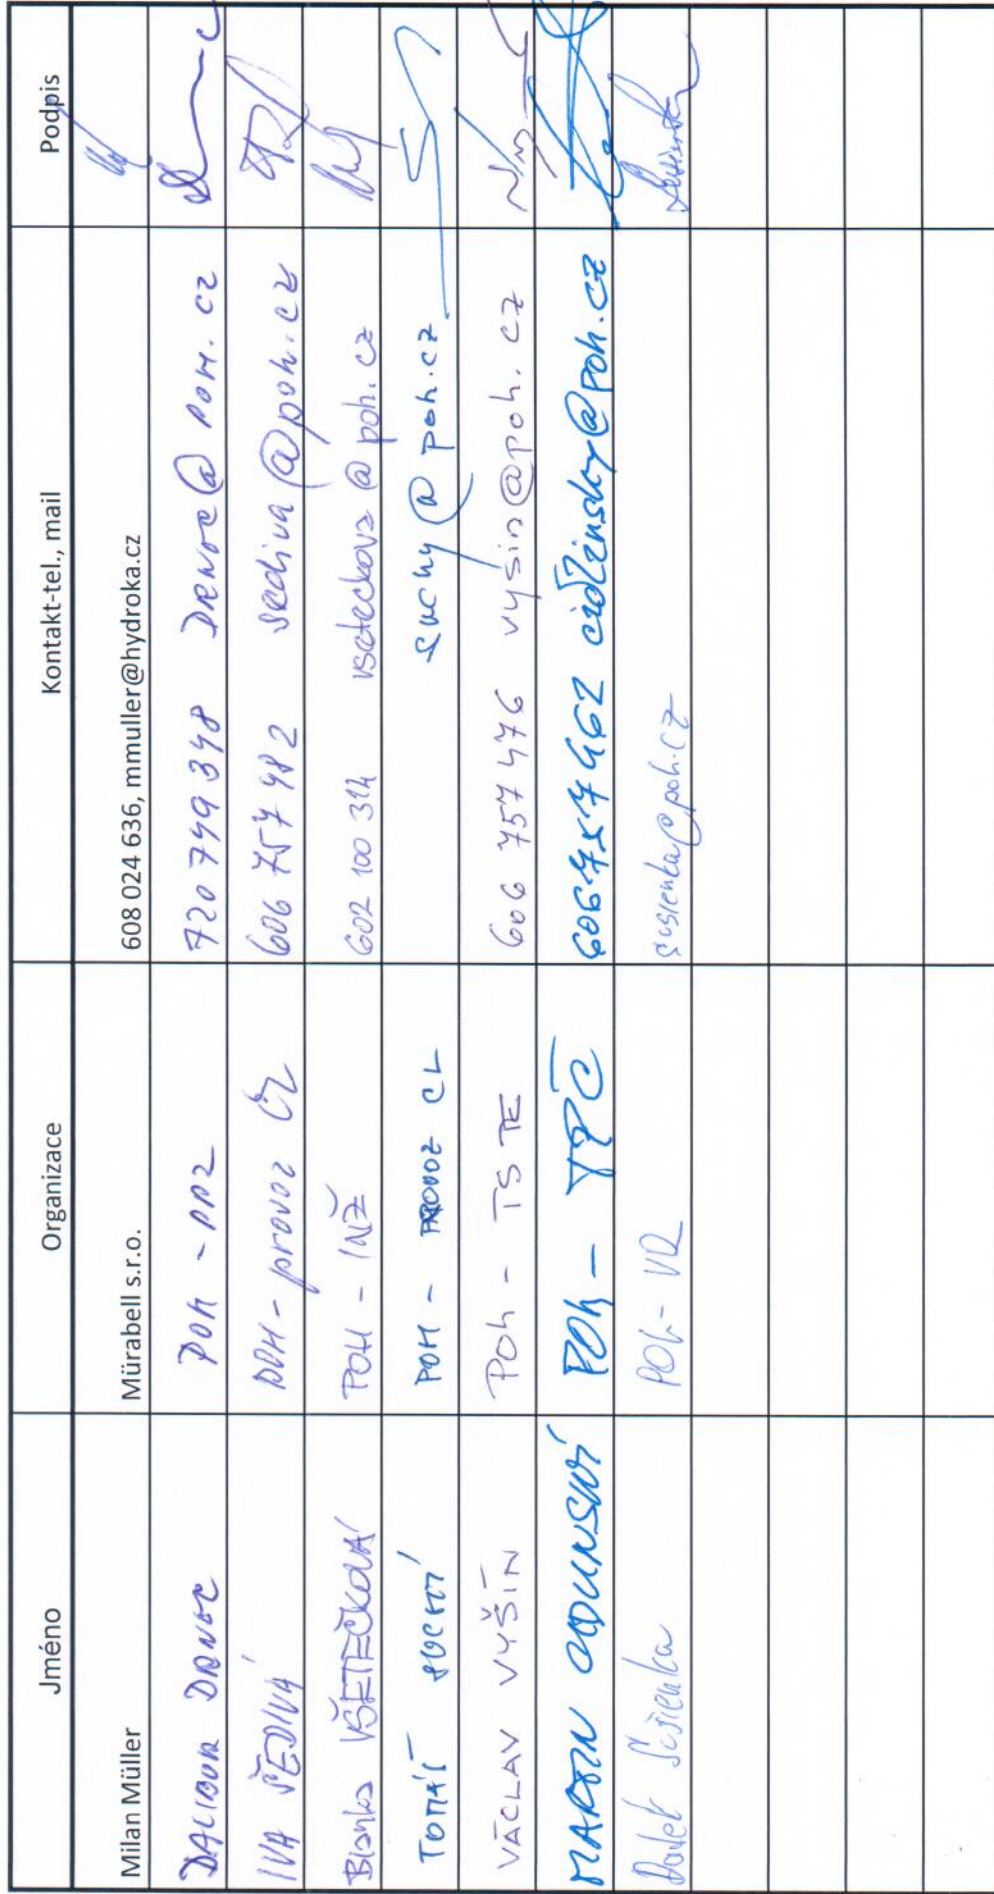 Jméno Organizace Kontakt-tel., mail Podpis
Milan Müller Mürabell s.r.o. 608 024 636, mmuller@hydroka.cz
DALIBOR DRNEC POH - PPZ 720 749 348 DRNEC@POH.CZ
IVA ŠEDIVÁ POH - provoz ČL 606 757 482 sediva@poh.cz
Blanka VŠETEČKOVÁ POH - INŽ 602 100 314 vseteckova@poh.cz
TOMÁŠ SUCHÝ POH - PROVOZ CL suchy@poh.cz
VÁCLAV VYŠÍN Poh - TS TE 606 757 476 vysin@poh.cz
MARTIN CIDLINSKÝ POh - TPČ 606757462 cidlinsky@poh.cz
POh - VR susienka@poh.cz